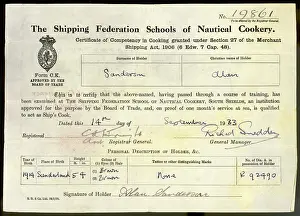 No. 19861
The Shipping Federation Schools of Nautical Cookery.
Certificate of Competency in Cooking granted under Section 27 of the Merchant
Shipping Act, 1906 (6 Edw. 7 Cap. 48).
Surname of Holder
Christian names of Holder
Sanderson
Alan
Form C.K.
APPROVED BY THE
BOARD OF TRADE
This is to certify that the above-named, having passed through a course of training,
has been examined at THE SHIPPING FEDERATION SCHOOL OF NAUTICAL COOKERY, SOUTH SHIELDS, an institution
approved for the purpose by the Board of Trade, and, on proof of one month's service at sea, is qualified
to act as Ship's Cook.
Dated this 14th day of September 1933
Registered
Registrar.
General Manager.
PERSONAL DESCRIPTION OF HOLDER, &c.
Sunderland
Brown
Brown
None
Signature of Holder Alan Sanderson